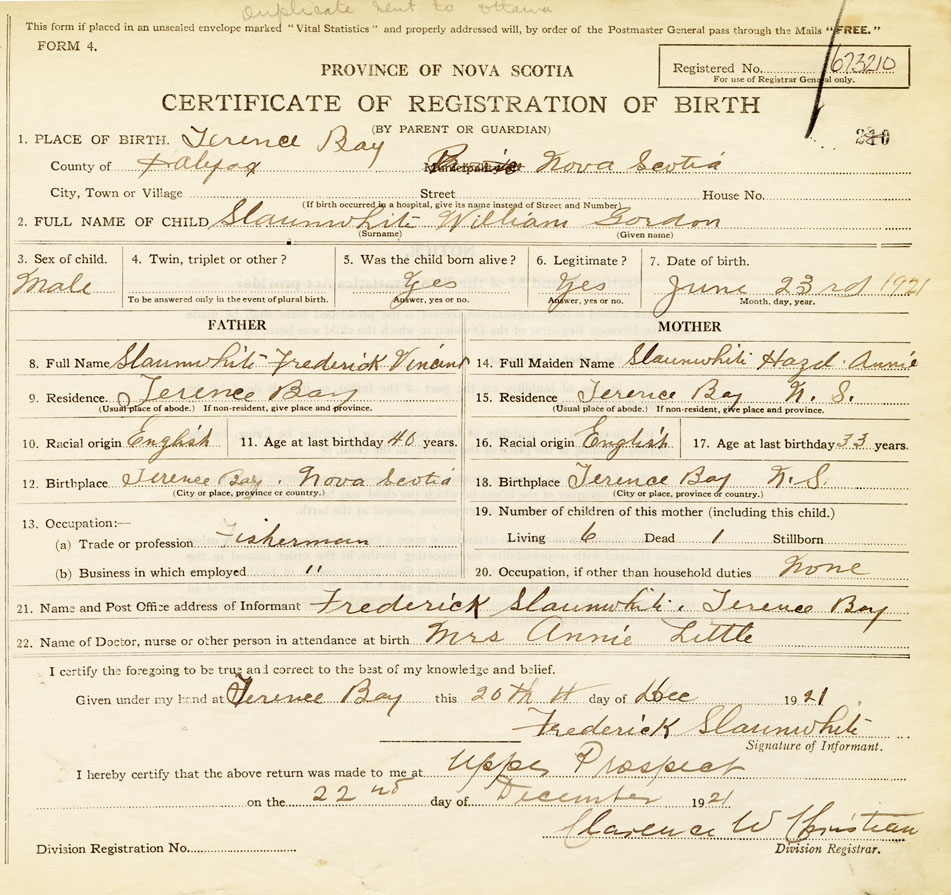 duplicate sent to Ottawa
This form if placed in an unsealed envelope marked "Vital Statistics" and properly addressed will, by order of the Postmaster General pass through the Mails "FREE."
FORM 4.
PROVINCE OF NOVA SCOTIA
Registered No. 673210
For use of Registrar General only.
CERTIFICATE OF REGISTRATION OF BIRTH
(BY PARENT OR GUARDIAN)
1. PLACE OF BIRTH. Terence Bay
County of Halifax Municipality of Nova Scotia
City, Town or Village Street House No.
(If birth occurred in a hospital, give its name instead of Street and Number)
2. FULL NAME OF CHILD Slaunwhite William Gordon
(Surname) (Given name)
3. Sex of child. 4. Twin, triplet or other? 5. Was the child born alive? 6. Legitimate? 7. Date of birth.
Male Yes Yes June 23rd 1921
To be answered only in the event of plural birth. Answer, yes or no. Answer, yes or no. Month, day, year.
FATHER MOTHER
8. Full Name Slaunwhite Frederick Vincent 14. Full Maiden Name Slaunwhite Hazel Annie
9. Residence. Terence Bay 15. Residence Terence Bay N. S.
(Usual place of abode.) If non-resident, give place and province. (Usual place of abode.) If non-resident, give place and province.
10. Racial origin English 11. Age at last birthday 40 years. 16. Racial origin English 17. Age at last birthday 33 years.
12. Birthplace Terence Bay. Nova Scotia 18. Birthplace Terence Bay N.S.
(City or place, province or country.) (City or place, province or country.)
13. Occupation:— 19. Number of children of this mother (including this child.)
(a) Trade or profession Fisherman Living 6 Dead 1 Stillborn
(b) Business in which employed " 20. Occupation, if other than household duties None
21. Name and Post Office address of Informant Frederick Slaunwhite. Terence Bay
22. Name of Doctor, nurse or other person in attendance at birth Mrs Annie Little
I certify the foregoing to be true and correct to the best of my knowledge and belief.
Given under my hand at Terence Bay this 20th day of Dec 1921
Frederick Slaunwhite
Signature of Informant.
I hereby certify that the above return was made to me at Upper Prospect
on the 22nd day of December 1921
Clarence W Christian
Division Registration No. Division Registrar.